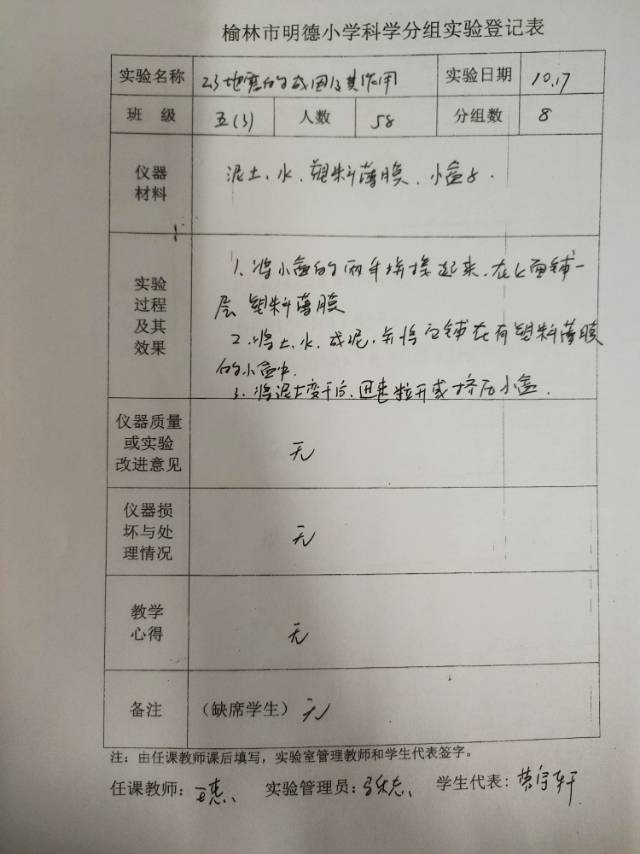 榆林市明德小学科学分组实验登记表
实验名称 2.3地震的成因及其作用 实验日期 10.17
班 级 五(3) 人数 58 分组数 8
仪器
材料
泥土、水、塑料薄膜、小盒子.
实验
过程
及其
效果
1、将小盒的两半拼接起来,在上面铺一
层塑料薄膜
2、将土、水、成泥,并将它铺在有塑料薄膜
的小盒中.
3、将泥土变干后,迅速拉开或挤压小盒.
仪器质量
或实验
改进意见
无
仪器损
坏与处
理情况
无
教学
心得
无
备注 (缺席学生) 无
注:由任课教师课后填写,实验室管理教师和学生代表签字。
任课教师: 实验管理员: 学生代表: